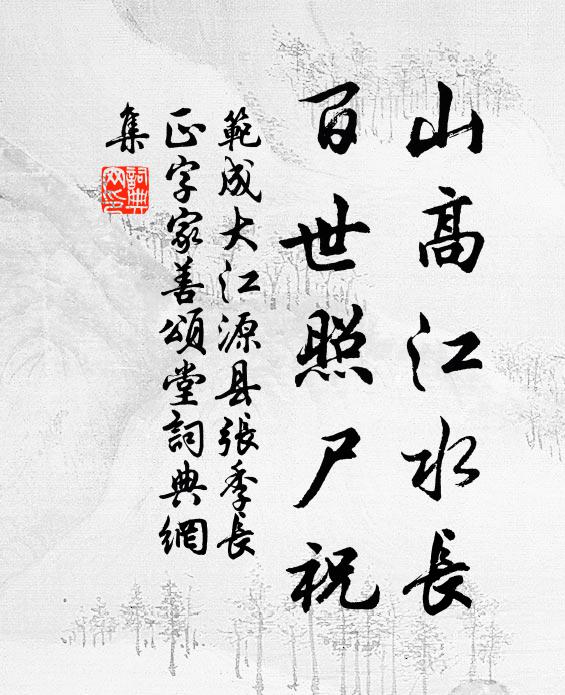 山高江水長
百世照尸祝
範成大江源县張季長
正字家善頌堂詞典網
集
詞典
网印